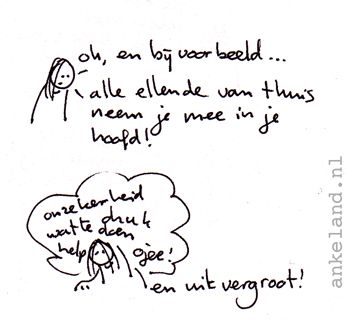 oh, en bijvoorbeeld...
alle ellende van thuis
neem je mee in je
hoofd!
onzekerheid
druk
wat te doen
help
ojee!
en uitvergroot!
ankeland.nl